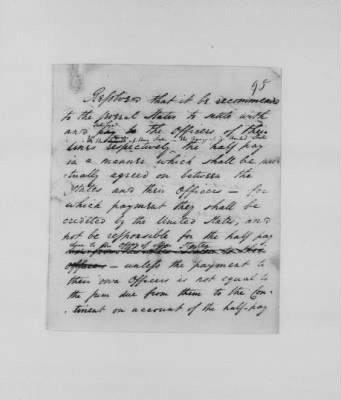 95
Resolved that it be recommended
to the several States to settle with
and satisfy the Officers of their
Lines respectively the half pay
in a manner which shall be mu
tually agreed on between the
States and their Officers — for
which payment they shall be
credited by the United States, and
not be responsible for the half pay
officers — unless the payment to
their own Officers is not equal to
the sum due from them to the Con-
-tinent on account of the half-pay